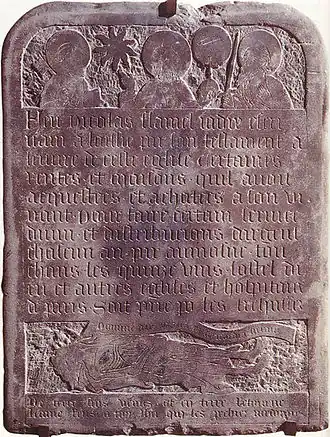 Feu nicolas flamel iadis escri
uain a laissie par son testament a
leuure de ceste eglise certaines
rentes et maisons quil auoit
acquestees et achatees a son vi
uant pour faire certain seruice
diuin et distributions dargent
chascun an par aumosne tou
chans les quinze vins lostel di
eu et autres eglises et hospitaux
de paris Soit prie po les
Domine
De terre suis venus et en terre retourne
Lame rens a toy ihu qui les pechiez pardonne